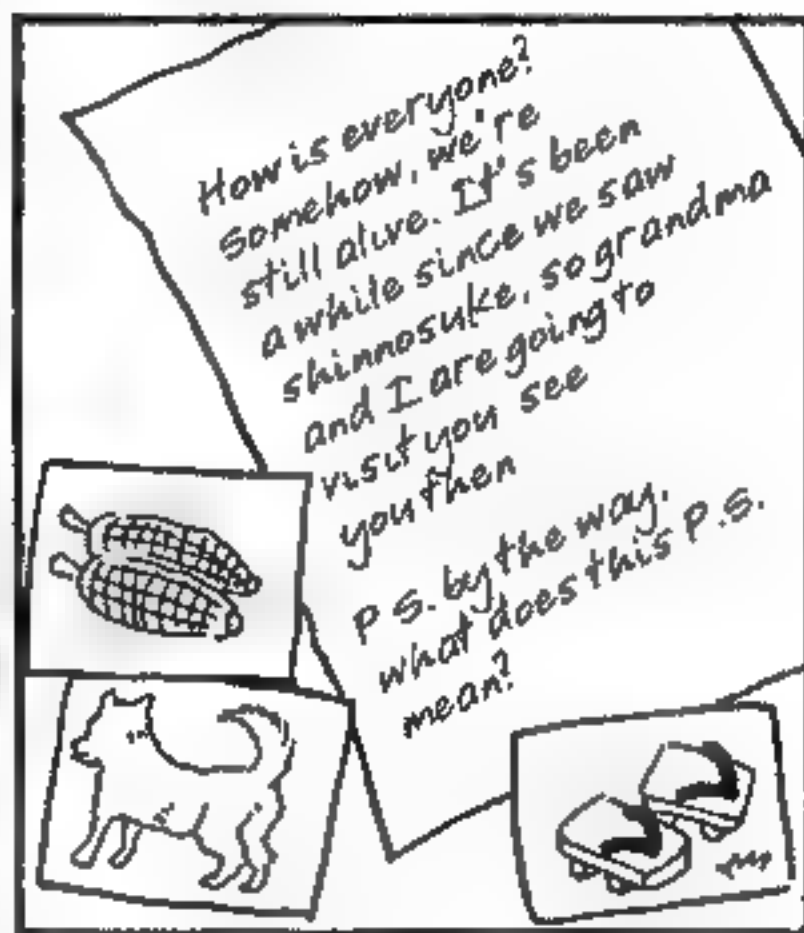 How is everyone?
Somehow, we're
still alive. It's been
a while since we saw
shinnosuke, so grandma
and I are going to
visit you see
you then
P S. by the way,
what does this P.S.
mean?